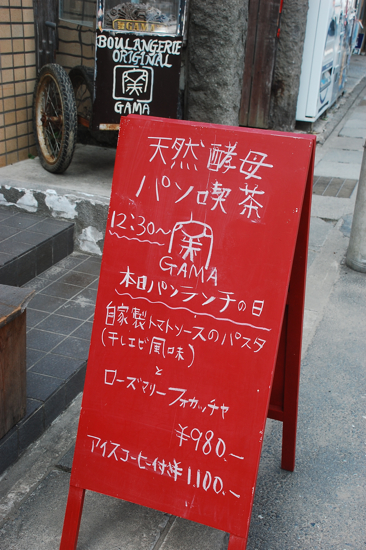 GAMA
BOULANGERIE
ORIGINAL
GAMA
天然酵母
パン喫茶
12:30〜
GAMA
本日パンランチの日
自家製トマトソースのパスタ
(干しエビ風味)
と
ローズマリーフォカッチャ
¥980.-
アイスコーヒー付¥1,100.-